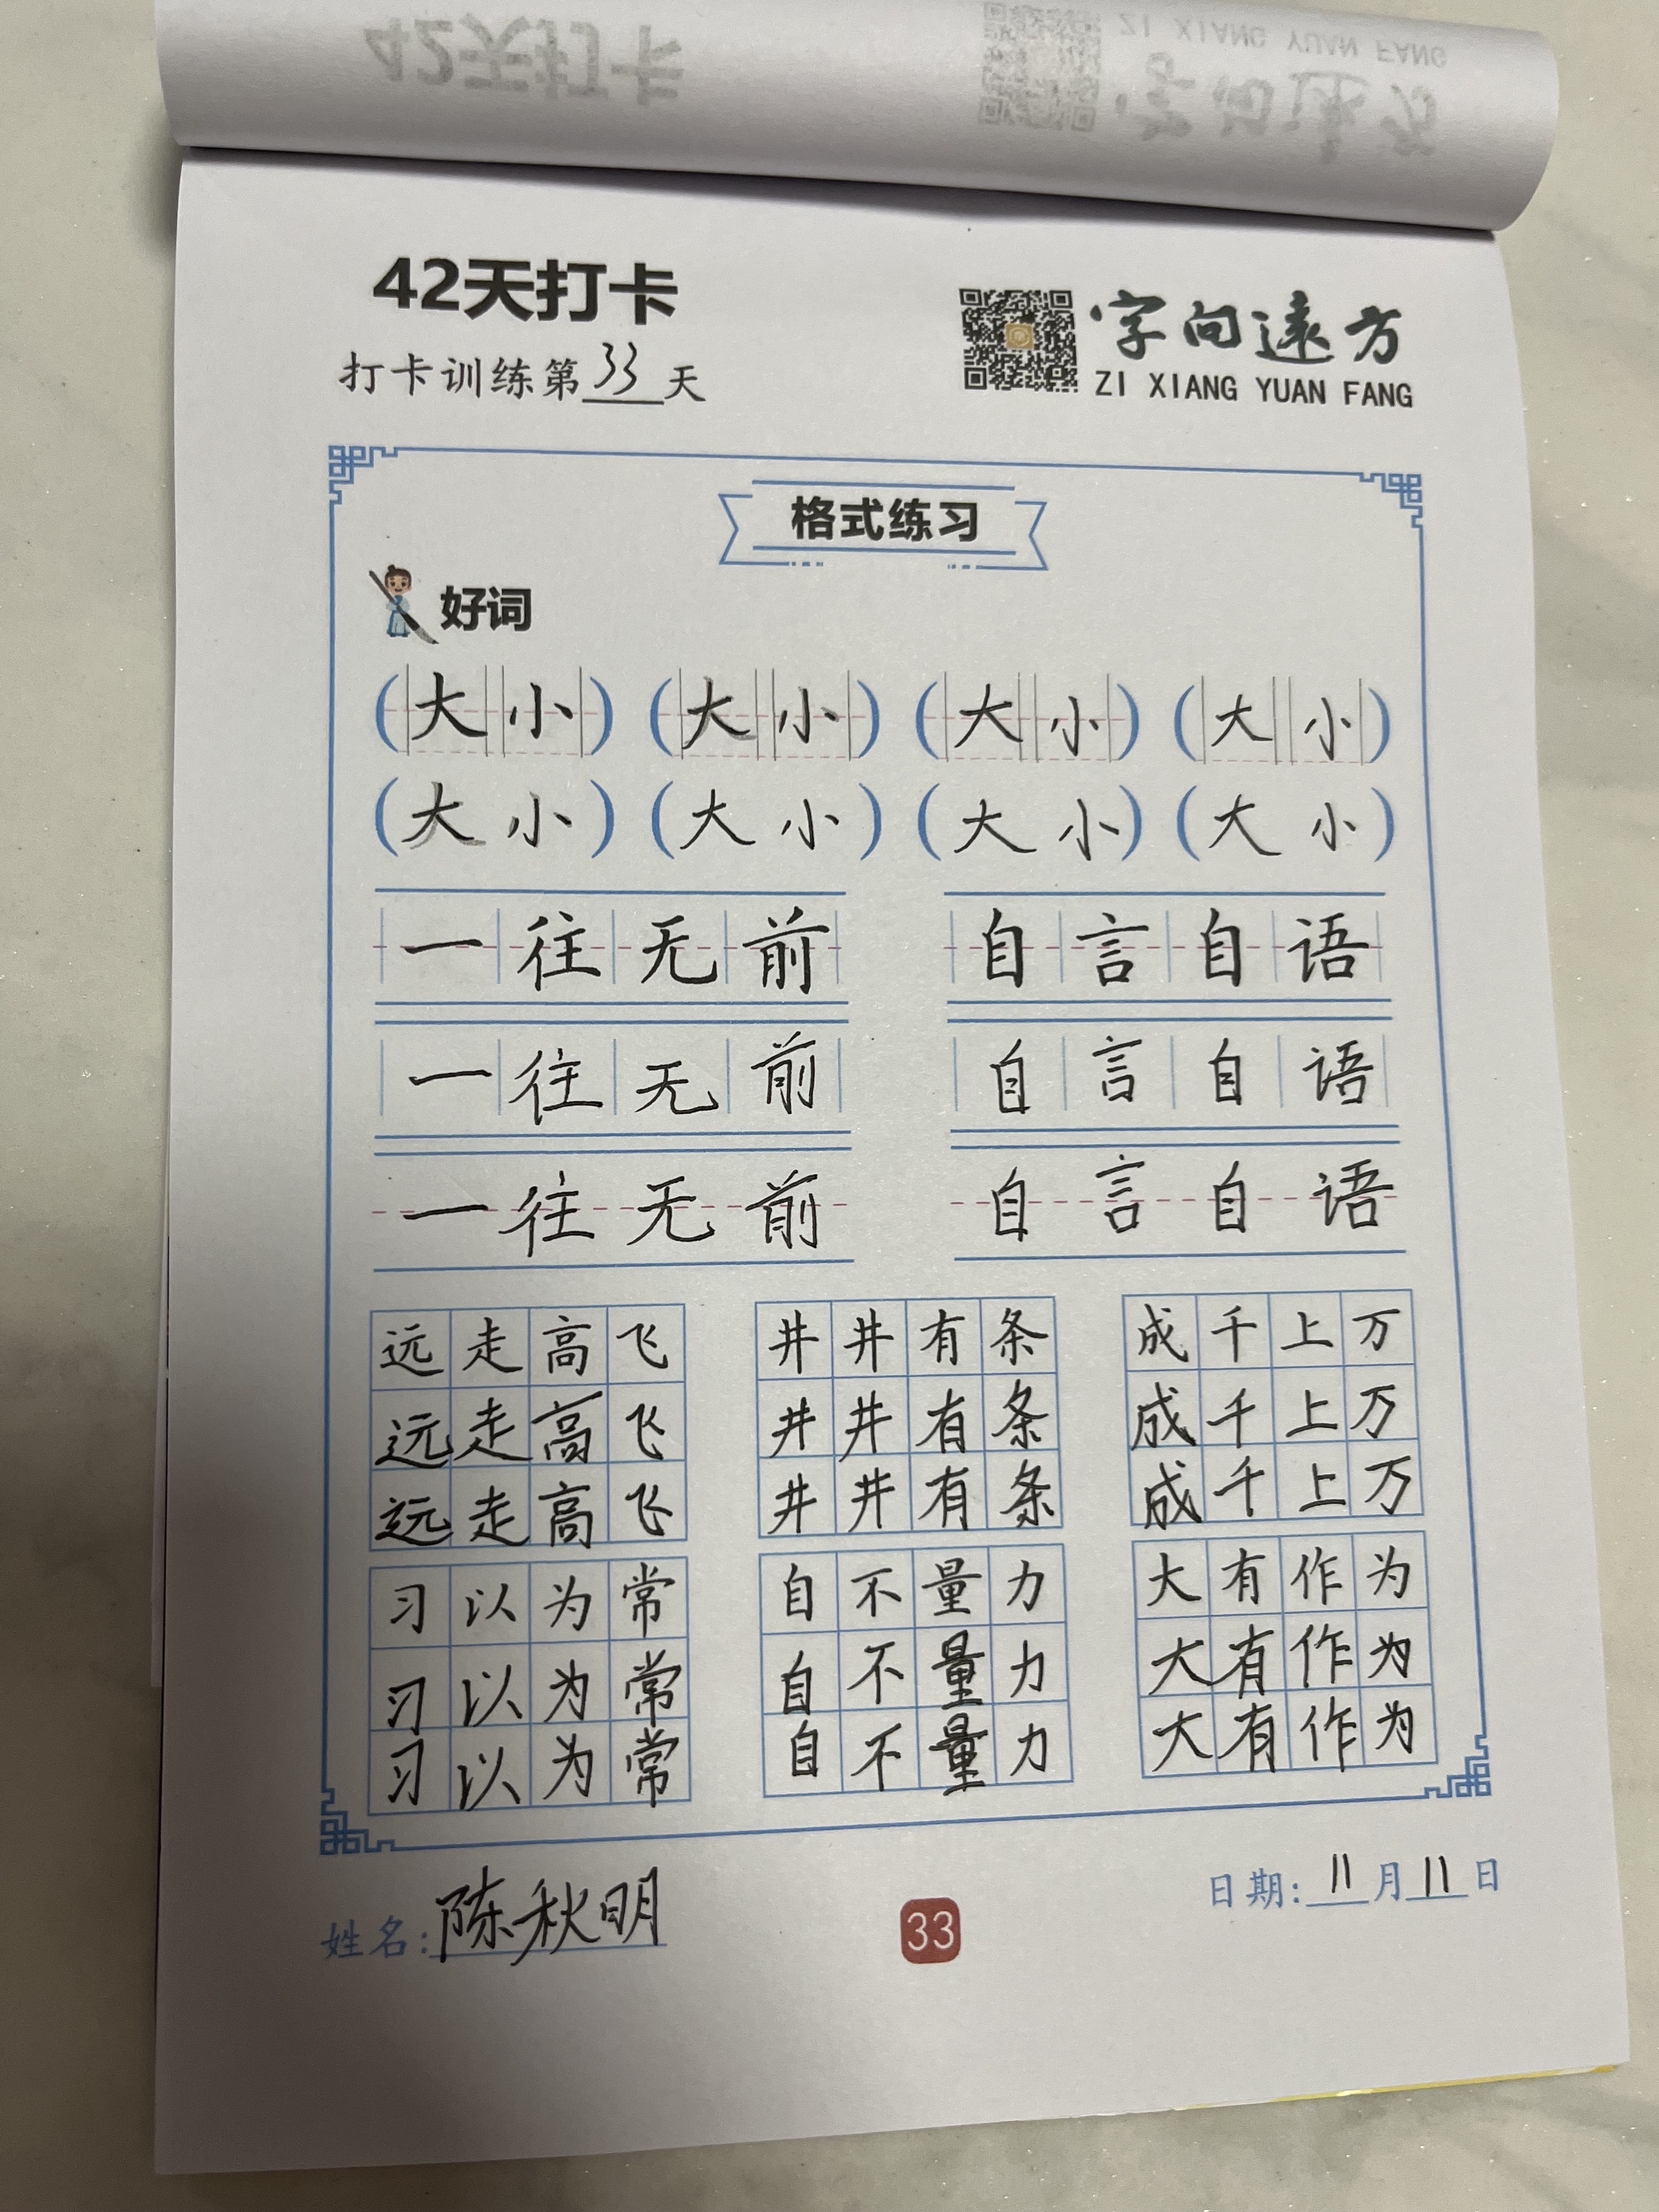 42天打卡
字向遠方
ZI XIANG YUAN FANG
42天打卡
字向遠方
打卡训练第33天
ZI XIANG YUAN FANG
格式练习
好词
(大小) (大小) (大小) (大小)
(大小) (大小) (大小) (大小)
一往无前 自言自语
一往无前 自言自语
一往无前 自言自语
远走高飞 井井有条 成千上万
远走高飞 井井有条 成千上万
远走高飞 井井有条 成千上万
习以为常 自不量力 大有作为
习以为常 自不量力 大有作为
习以为常 自不量力 大有作为
姓名:陈秋明
33
日期:11月11日